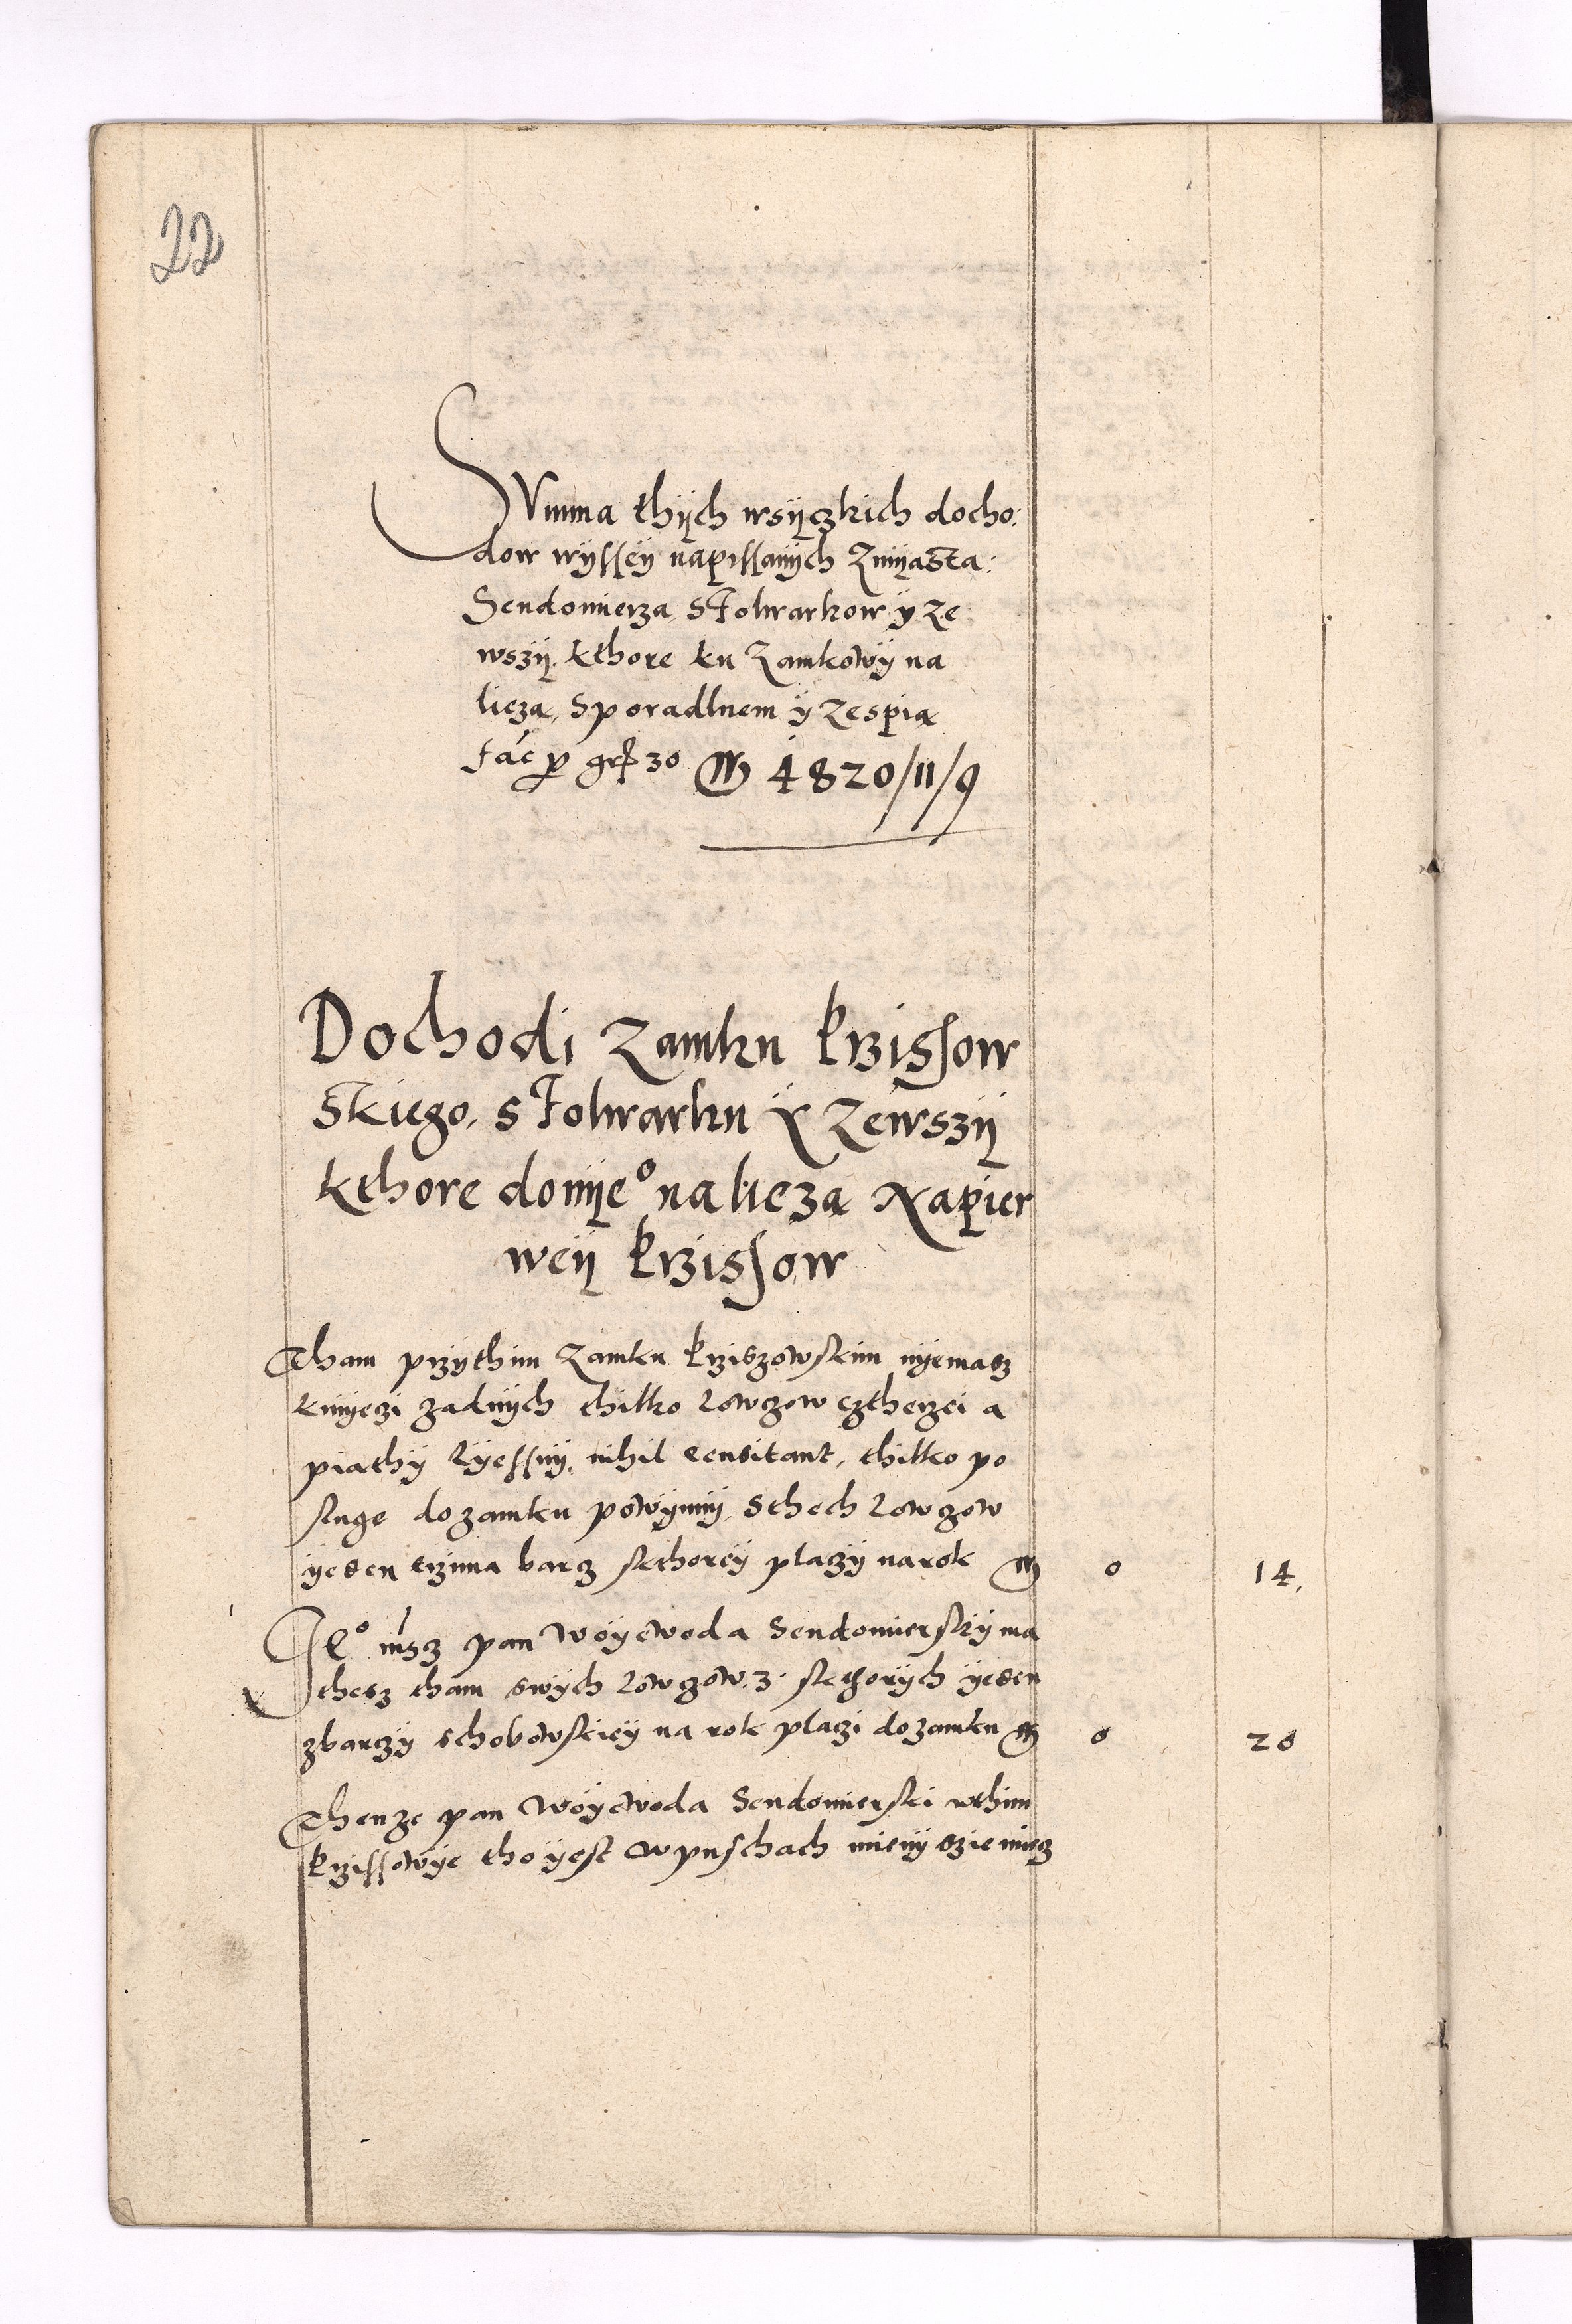 22
Summa thÿch wsÿczkich docho:
dow wÿssey napissanÿch zmÿasta:
Sendomierza, s folwarkow ÿ ze
wszÿ, kthore ku zamkowÿ na
lieza, sporadlnem ÿ zespią
fac per gr 30 M 4820/11/9
Dochodi zamku krzissow
skiego, s folwarku Y zewszÿ
kthore do nÿeº nalieza Napier
weÿ krzissow
Tham przythim zamku krziszowskim nÿemasz
kmÿeczi zadnÿch thilko lowczow cztherzei a
piathÿ lÿessnÿ, nihil censitant, thilko po
sluge do zamku powÿnnÿ, S thech lowczow
ÿeden trzima barcz skthorey placzÿ na rok M 0 14
Jeº msz pan woÿewoda Sendomierskÿ ma
thesz tham swÿch lowczow 3 skthorÿch ÿeden
zbarczÿ schobowskieÿ na rok placzi do zamku M 0 20
Thenze pan woÿewoda Sendomierski wthim
krzissowÿe tho ÿest w puschach